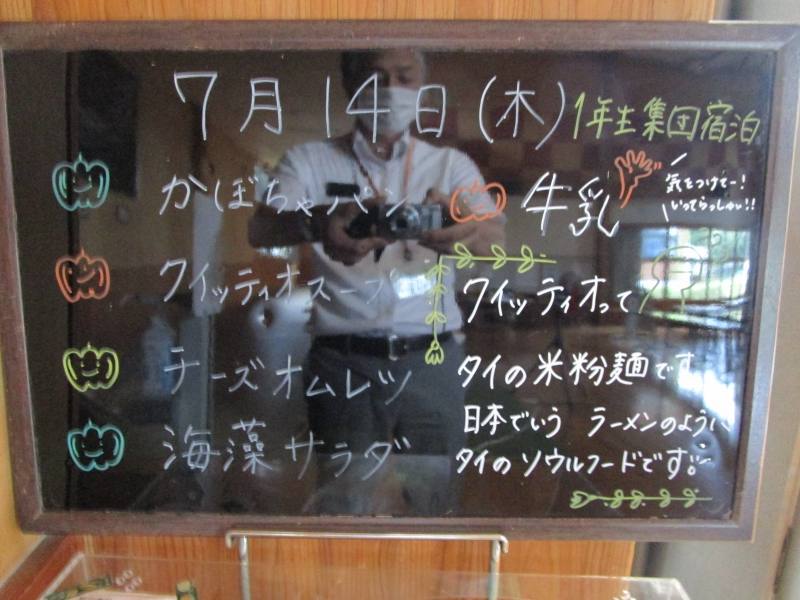 7月14日(木) 1年生集団宿泊
気をつけてー!
いってらっしゃい!!
かぼちゃパン 牛乳
クイッティオスープ
チーズオムレツ
海藻サラダ
クイッティオって
タイの米粉麺です
日本でいう ラーメンのように
タイのソウルフードです。